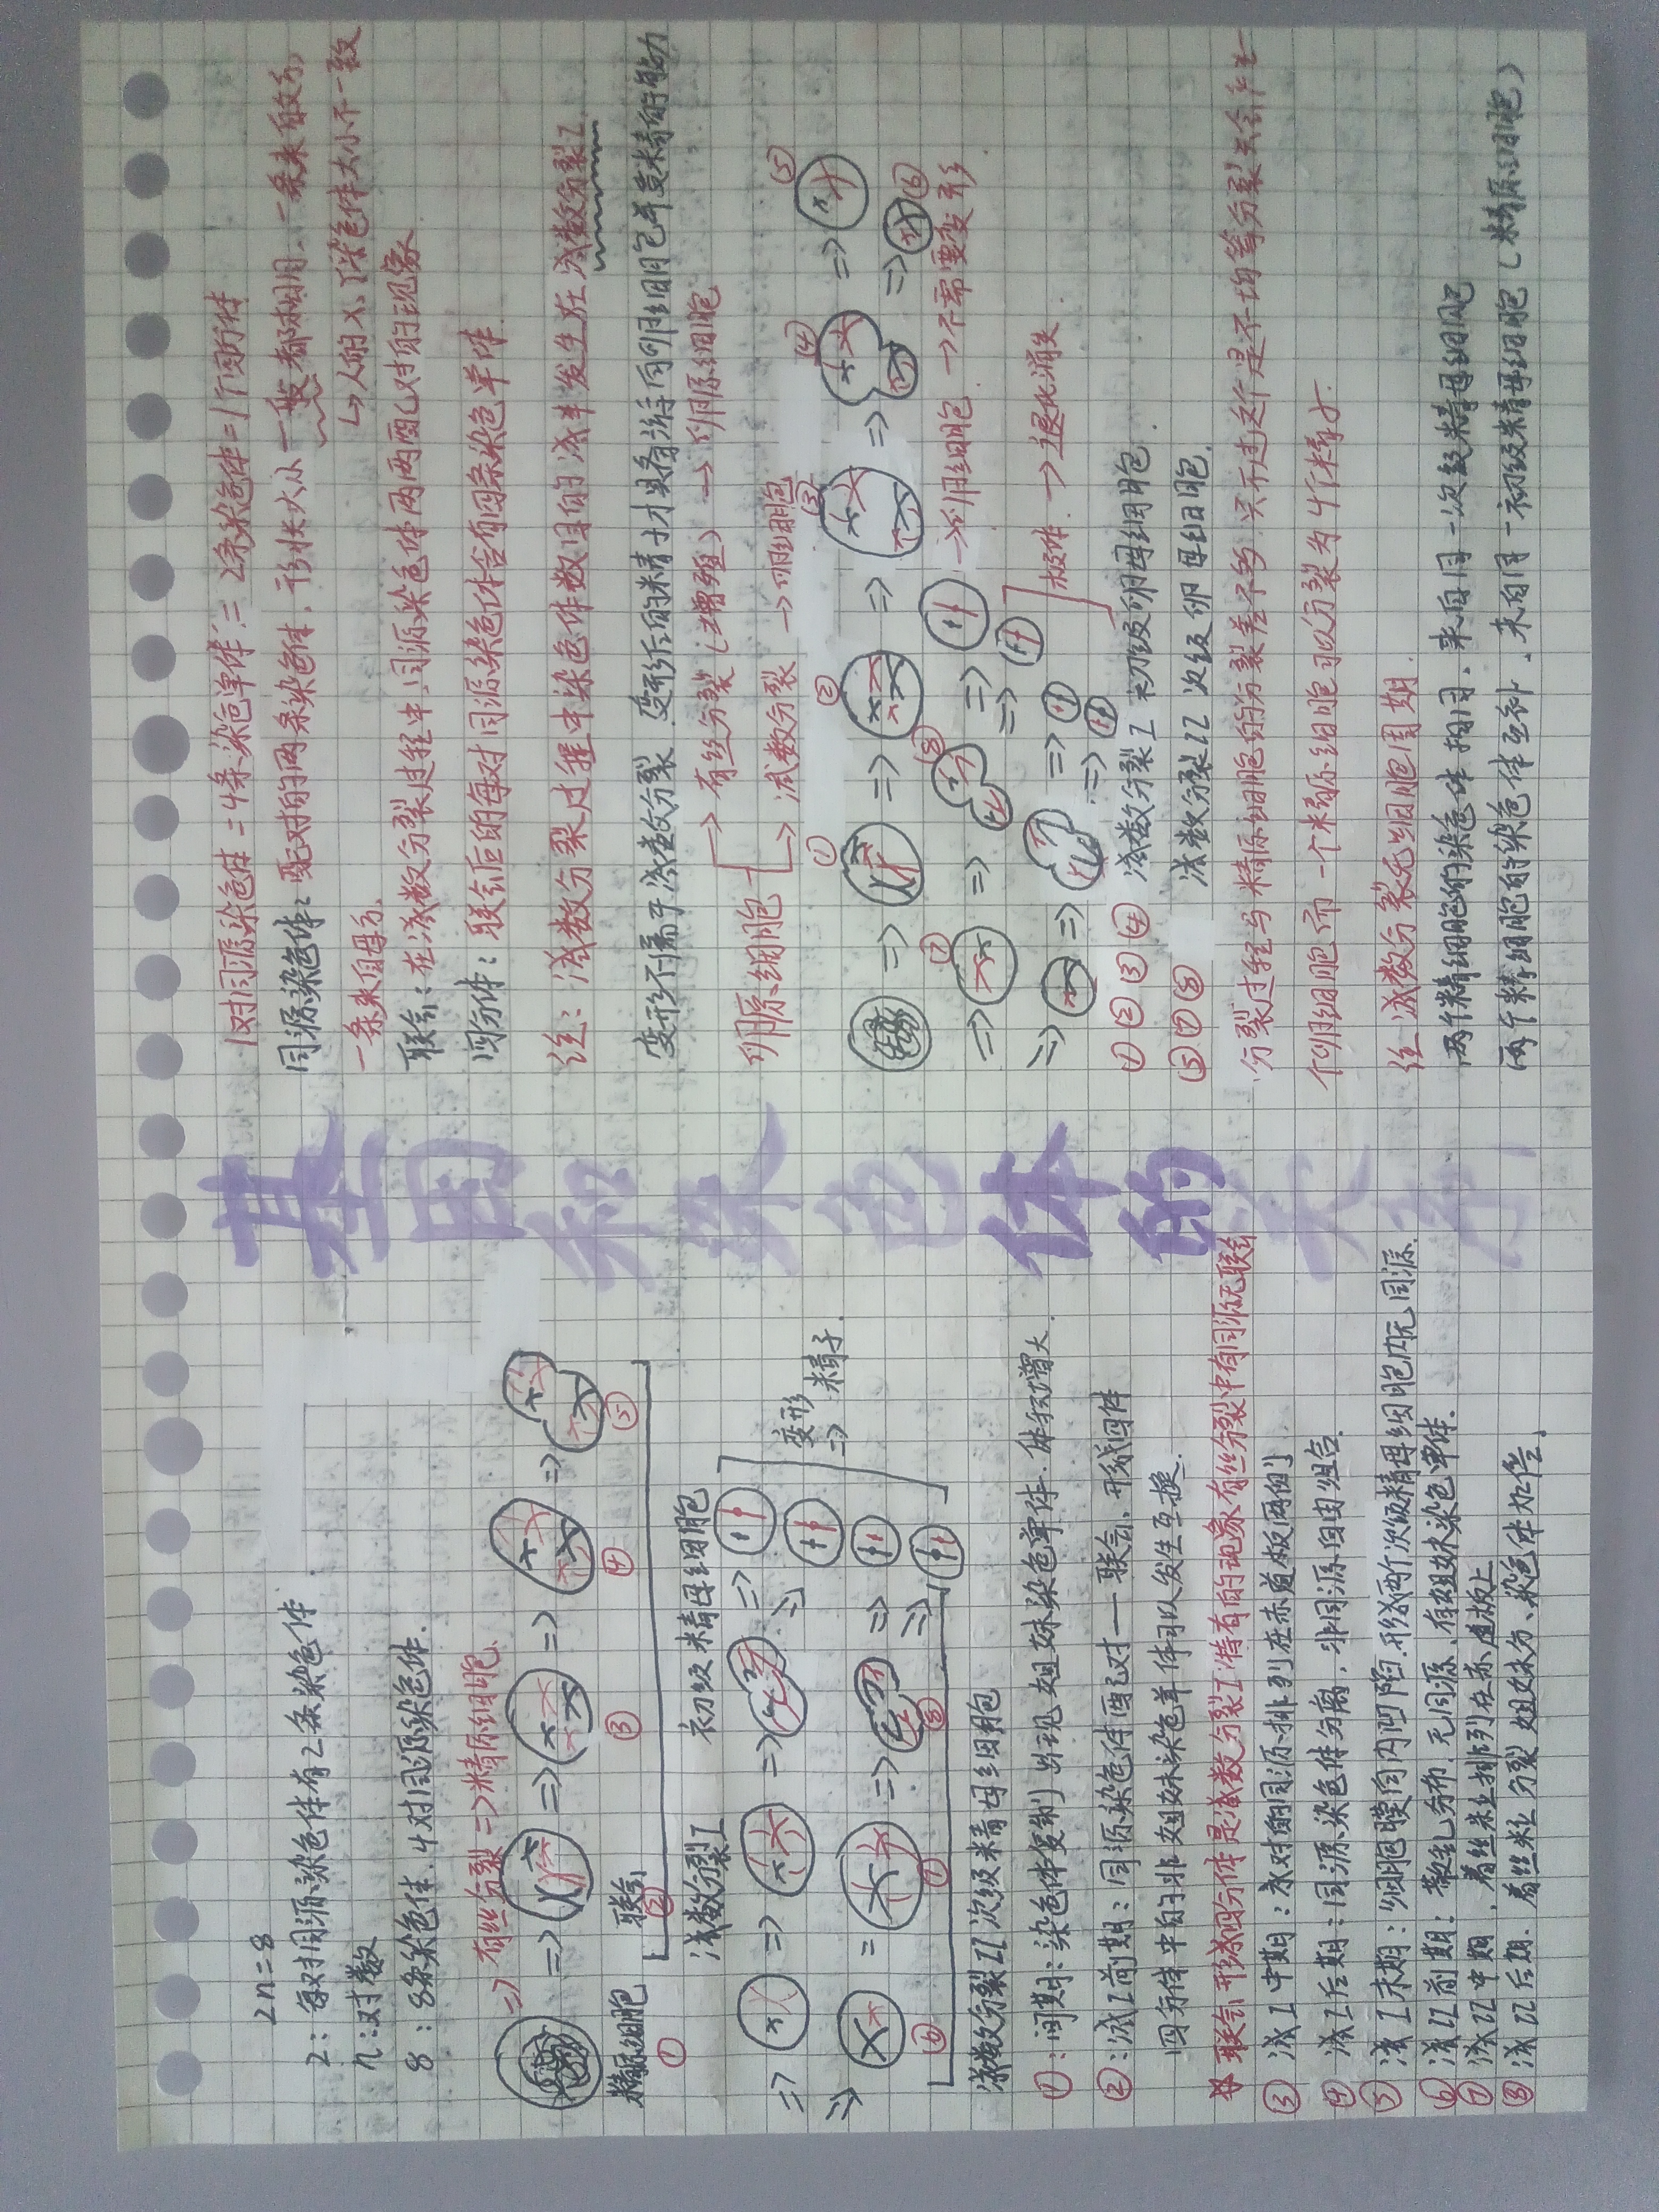 2n=8
2：每对同源染色体有2条染色体
n：对数
8：8条染色体.4对同源染色体.
=> 有丝分裂=>精原细胞.
=> => => =>
精原细胞 联会
① ② ③ ④ ⑤
减数分裂I 初级精母细胞
=> => => =>
变形 精子
=>
=> = => =>
⑥ ⑦ ⑧
减数分裂II 次级精母细胞
①：间期：染色体复制 出现姐妹染色单体.体积增大.
②：减I前期：同源染色体配对——联会、形成四体
四分体中的非姐妹染色单体可以发生互换.
联会形成四分体是减数分裂I特有的现象有丝分裂中有同源无联会
③ 减I中期：成对的同源排列在赤道板两侧
④ 减I后期：同源染色体分离，非同源自由组合.
⑤ 减I末期：细胞膜向内凹陷.形成两个次级精母细胞内无同源.
⑥ 减II前期：散乱分布.无同源、存姐妹染色单体.
⑦ 减II中期.着丝粒排列在赤道板上
⑧ 减II后期.着丝粒分裂姐妹分、染色体加倍。
基因和染色体的关系
1对同源染色体=4条染色单体=2条染色体=1个四分体
同源染色体：配对的两条染色体，形状大小一般都相同.一条来自父方
一条来自母方. ↳人的X、Y染色体大小不一致
联会：在减数分裂过程中.同源染色体两两配对的现象
四分体：联会后的每对同源染色体含有四条染色单体.
注：减数分裂过程中染色体数目的减半发生在减数分裂I.
变形不属于减数分裂.变形后的精子才具备游向卵细胞并受精的能力
卵原细胞 → 有丝分裂（增殖）→ 卵原细胞
↳ 减数分裂 → 卵细胞
① ② ③ ④ ⑤
=> => => => =>
⑦ ⑧ ⑥
=> => => → 卵细胞 → 不需要变形
=> => => 极体 → 退化消失
①②③④ 减数分裂I 初级卵母细胞
⑤⑦⑧ 减数分裂II 次级卵母细胞.
分裂过程与精原细胞的分裂差不多 只不过这个是不均等分裂只会产生一
个卵细胞 而一个精原细胞可以分裂为4个精子.
注：减数分裂无细胞周期.
两个精细胞的染色体相同、来自同一次级精母细胞
两个精细胞的染色体互补.来自同一初级精母细胞（精原细胞）